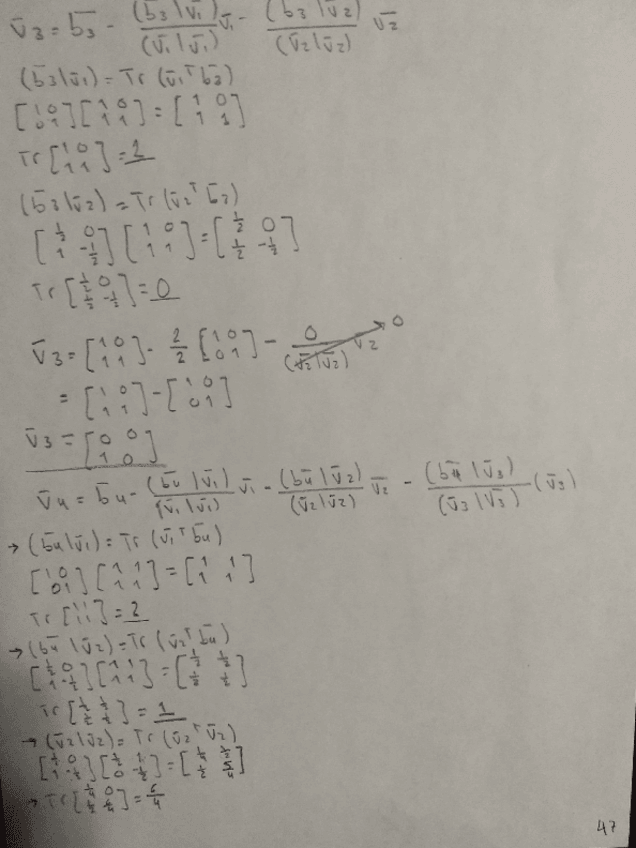 v̄3 = b̄3 - (b̄3|v̄1)/(v̄1|v̄1) v̄1 - (b̄3|v̄2)/(v̄2|v̄2) v̄2
(b̄3|v̄1) = Tr (v̄1ᵀ b̄3)
[1 0; 0 1][1 0; 1 1] = [1 0; 1 1]
Tr [1 0; 1 1] = 2
(b̄3|v̄2) = Tr (v̄2ᵀ b̄3)
[½ 0; 1 -½][1 0; 1 1] = [½ 0; ½ -½]
Tr [½ 0; ½ -½] = 0
v̄3 = [1 0; 1 1] - 2/2 [1 0; 0 1] - 0/(v̄2|v̄2) v̄2 → 0
= [1 0; 1 1] - [1 0; 0 1]
v̄3 = [0 0; 1 0]
v̄4 = b̄4 - (b̄4|v̄1)/(v̄1|v̄1) v̄1 - (b̄4|v̄2)/(v̄2|v̄2) v̄2 - (b̄4|v̄3)/(v̄3|v̄3) (v̄3)
→ (b̄4|v̄1) = Tr (v̄1ᵀ b̄4)
[1 0; 0 1][1 1; 1 1] = [1 1; 1 1]
Tr [1 1; 1 1] = 2
→ (b̄4|v̄2) = Tr (v̄2ᵀ b̄4)
[½ 0; 1 -½][1 1; 1 1] = [½ ½; ½ ½]
Tr [½ ½; ½ ½] = 1
→ (v̄2|v̄2) = Tr (v̄2ᵀ v̄2)
[½ 0; 1 -½][½ 1; 0 -½] = [¼ ½; ½ 5/4]
→ Tr [¼ 0; ½ 5/4] = 6/4
47